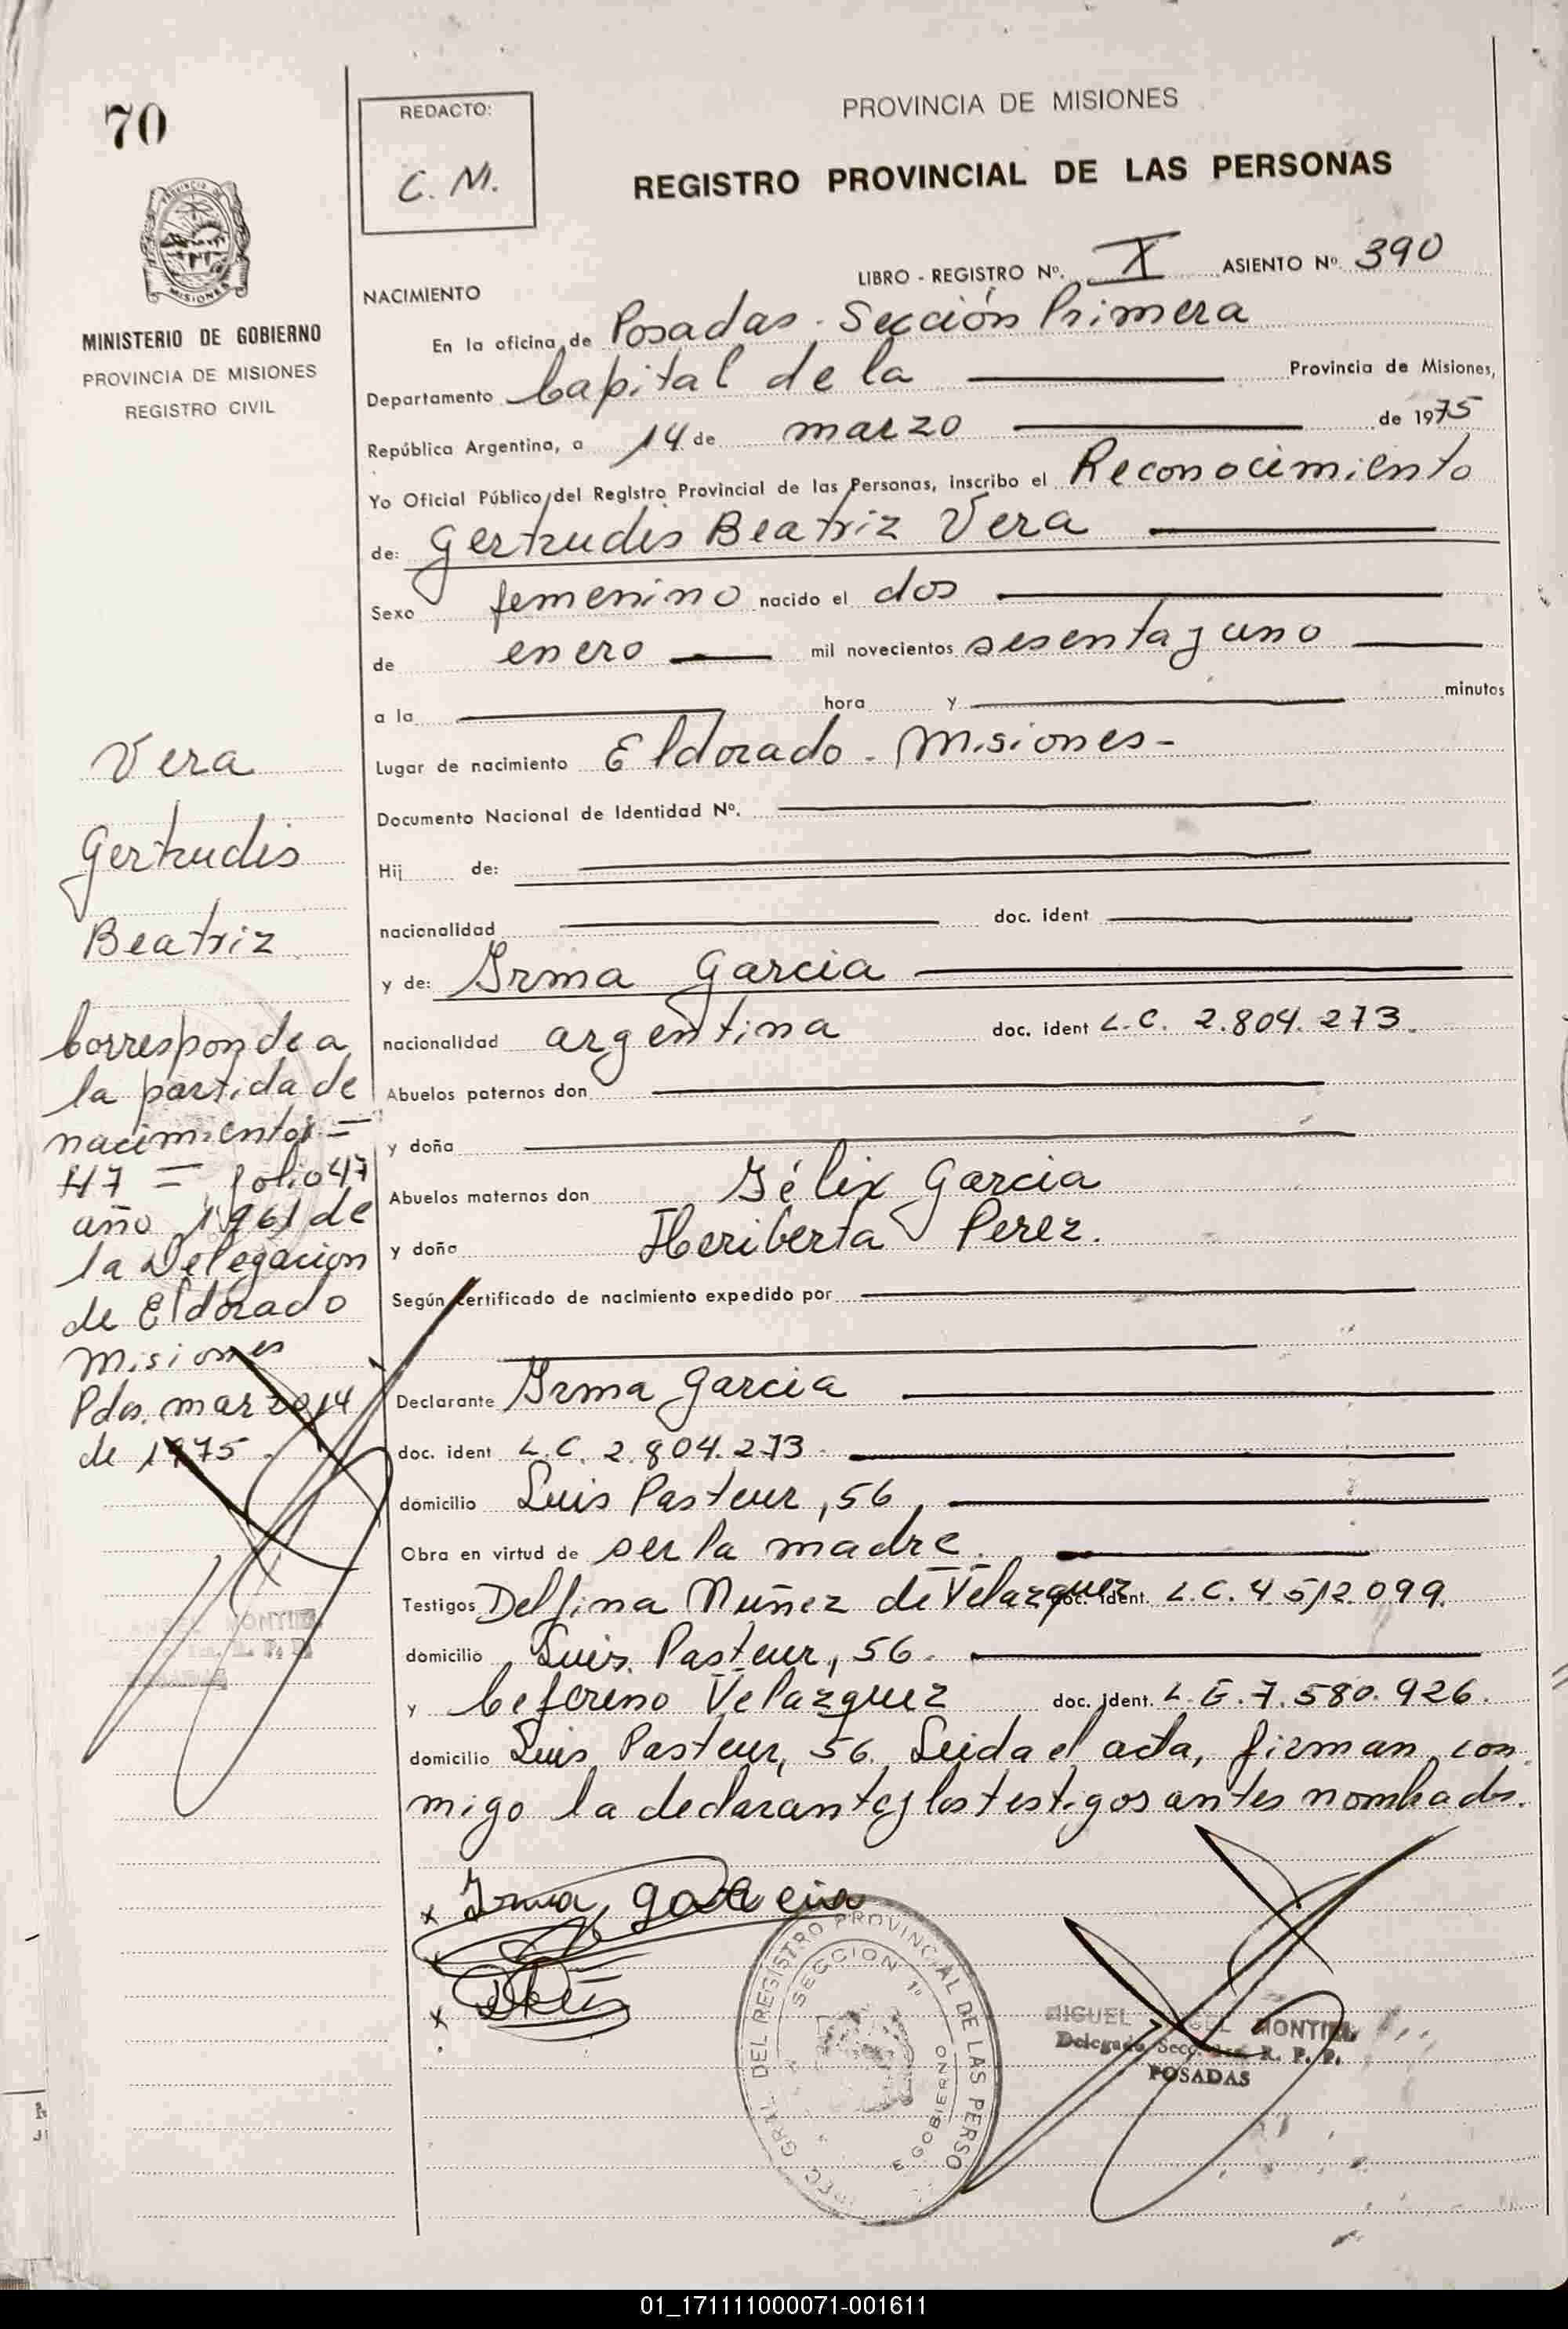 70
MINISTERIO DE GOBIERNO
PROVINCIA DE MISIONES
REGISTRO CIVIL
REDACTO:
C. M.
PROVINCIA DE MISIONES
REGISTRO PROVINCIAL DE LAS PERSONAS
LIBRO - REGISTRO Nº. I ASIENTO Nº 390
NACIMIENTO
En la oficina de Posadas - Sección Primera
Departamento Capital de la Provincia de Misiones,
República Argentina, a 14 de marzo de 1975
Yo Oficial Público del Registro Provincial de las Personas, inscribo el Reconocimiento
de: Gertrudis Beatriz Vera
Sexo femenino nacido el dos
de enero mil novecientos sesenta y uno
a la hora y minutos
Lugar de nacimiento Eldorado - Misiones -
Documento Nacional de Identidad Nº.
Hij de:
nacionalidad doc. ident
y de: Irma Garcia
nacionalidad argentina doc. ident L.C. 2.804.273.
Abuelos paternos don
y doña
Abuelos maternos don Félix Garcia
y doña Heriberta Perez.
Según certificado de nacimiento expedido por
Declarante Irma Garcia
doc. ident L.C. 2.804.273.
domicilio Luis Pasteur, 56
Obra en virtud de ser la madre.
Testigos Delfina Nuñez de Velazquez doc. ident. L.C. 4 512.099.
domicilio Luis Pasteur, 56.
y Ceferino Velazquez doc. ident. L.E. 7.580.926.
domicilio Luis Pasteur, 56. Leida el acta, firman con
migo la declarante y los testigos antes nombrados.
x Irma garcia
x
x
Vera
Gertrudis
Beatriz
Corresponde a
la partida de
nacimientos =
47 = folio 47
año 1961 de
la Delegacion
de Eldorado
Misiones
Pdas. marzo 14
de 1975.
MONTIEL
GRAL DEL REGISTRO PROVINCIAL DE LAS PERSO
SECCION 1º
GOBIERNO
MIGUEL MONTIEL
Delegado Secc. R. P. P.
POSADAS
01_171111000071-001611